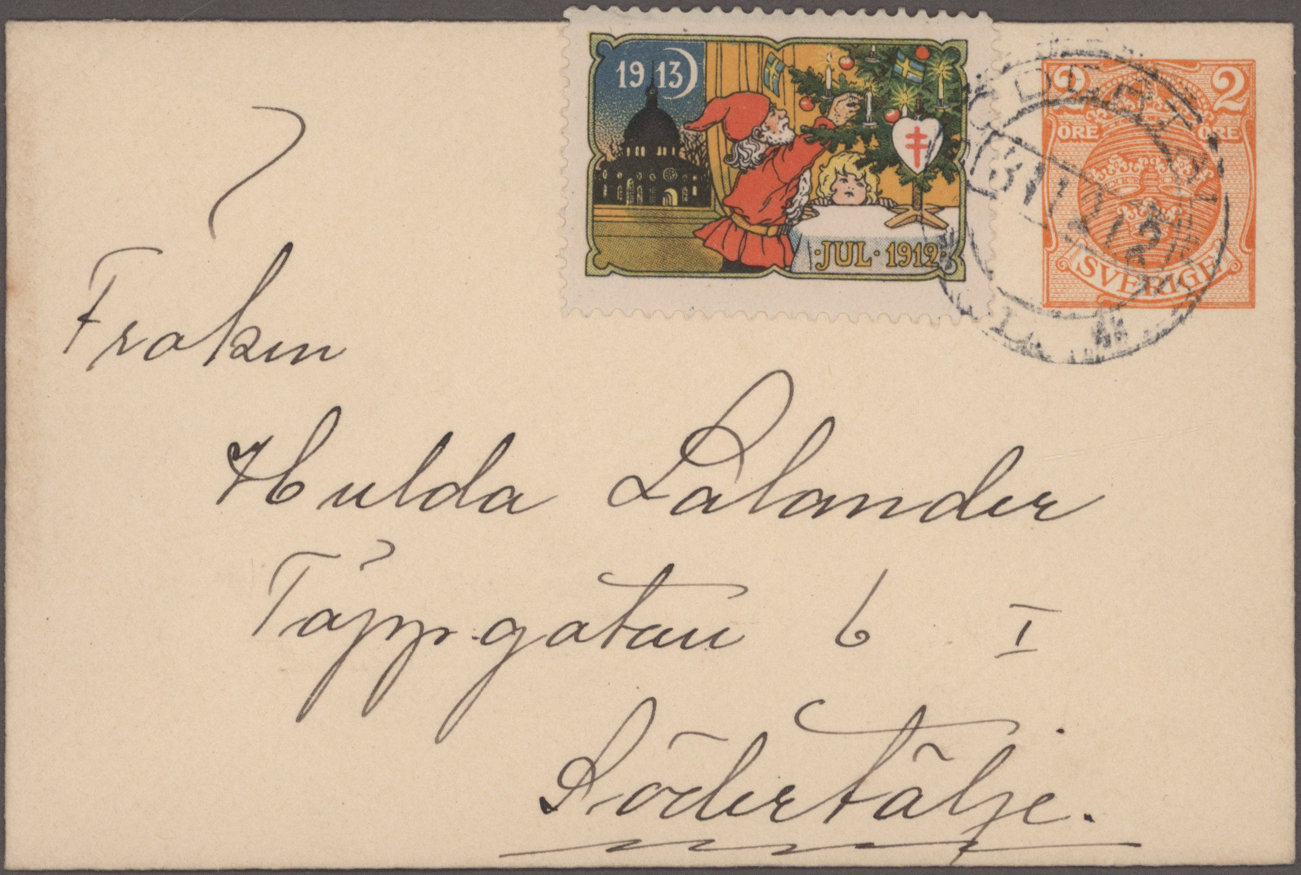 1913
JUL · 1912
2 2
ÖRE ÖRE
SVERIGE
31 12 12
Fröken
Hulda Lalander
Täppgatan 6 I
Södertälje.